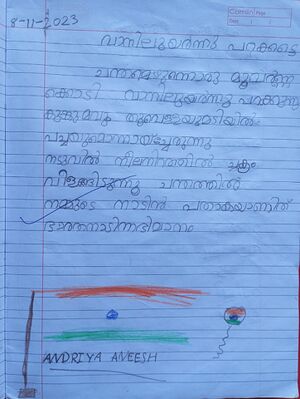 8-11-2023
വാനിലുയർന്നു പറക്കട്ടെ
ചന്തമെഴുന്നൊരു മൂവർണ്ണ
ക്കൊടി വാനിലുയർന്നു പറക്കുന്നു
കുങ്കുമവും തൂവെള്ളയുമടിയിൽ
പച്ചയുമൊന്നായ്ചേരുന്നു
നടുവിൽ നീലനിറത്തിൽ ചക്രം
വിളങ്ങിടുന്നു ചന്തത്തിൽ
നമ്മുടെ നാടിൻ പതാകയാണിത്
ഭാരതനാടിന്നഭിമാനം
ANDRIYA ANEESH